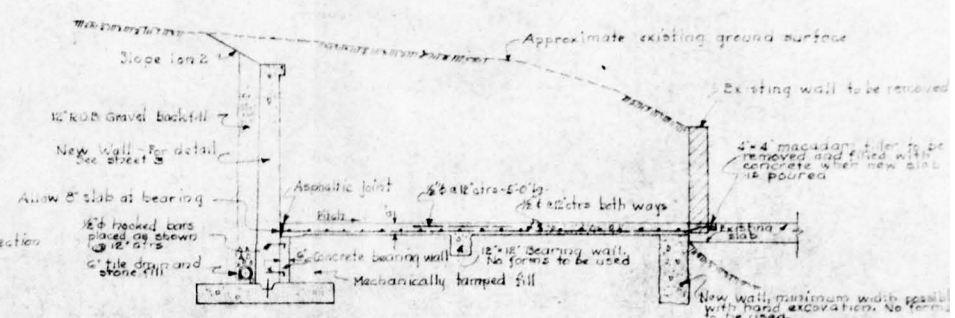 Approximate existing ground surface
Slope 1 on 2
Existing wall to be removed
12" R.O.B. Gravel backfill
New Wall - For detail
See street 3
4"x4" macadam filler to be
removed and filled with
concrete when new slab
is poured
Allow 8" slab at bearing
Asphaltic joint
½"ϕ@12"ctrs-5'-0"lg.
½"ϕ@12"ctrs both ways
Pitch
½"ϕ hooked bars
placed as shown
@ 12" ctrs
ection
Existing
slab
6" tile drain and
stone fill
Concrete bearing wall
12"x12" Bearing wall.
No forms to be used
Mechanically tamped fill
New wall, minimum width possibl
with hand excavation. No form
to be used